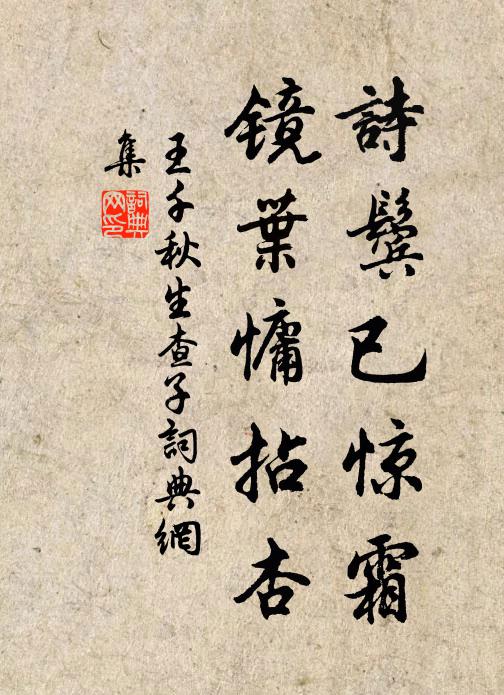 詩鬢已惊霜
镜葉慵拈杏
王千秋生查子詞典網
集
詞典网印